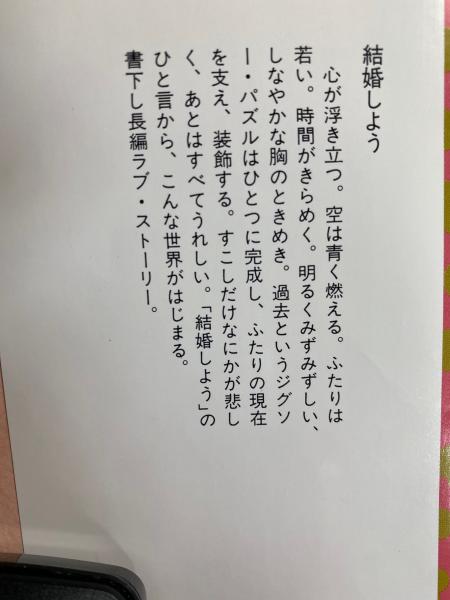 結婚しよう
心が浮き立つ。空は青く燃える。ふたりは
若い。時間がきらめく。明るくみずみずしい、
しなやかな胸のときめき。過去というジグソ
ー・パズルはひとつに完成し、ふたりの現在
を支え、装飾する。すこしだけなにかが悲し
く、あとはすべてうれしい。「結婚しよう」の
ひと言から、こんな世界がはじまる。
書下し長編ラブ・ストーリー。